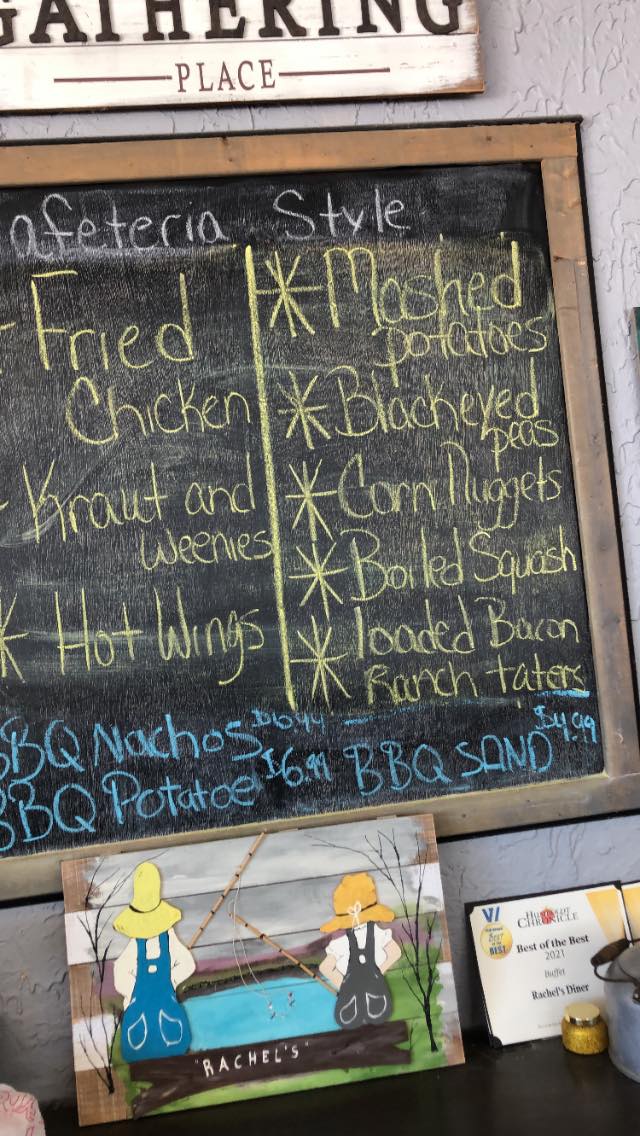 GATHERING
PLACE
afeteria Style
Fried
Chicken
Kraut and
weenies
Hot Wings
Mashed
potatoes
Blackeyed
peas
Corn Nuggets
Boiled Squash
loaded Bacon
Ranch taters
BBQ Nachos
BBQ Potatoe $6.99
BBQ SAND $4.99
"RACHEL'S"
BEST
Humboldt
CHRONICLE
Best of the Best
2021
Buffet
Rachel's Diner